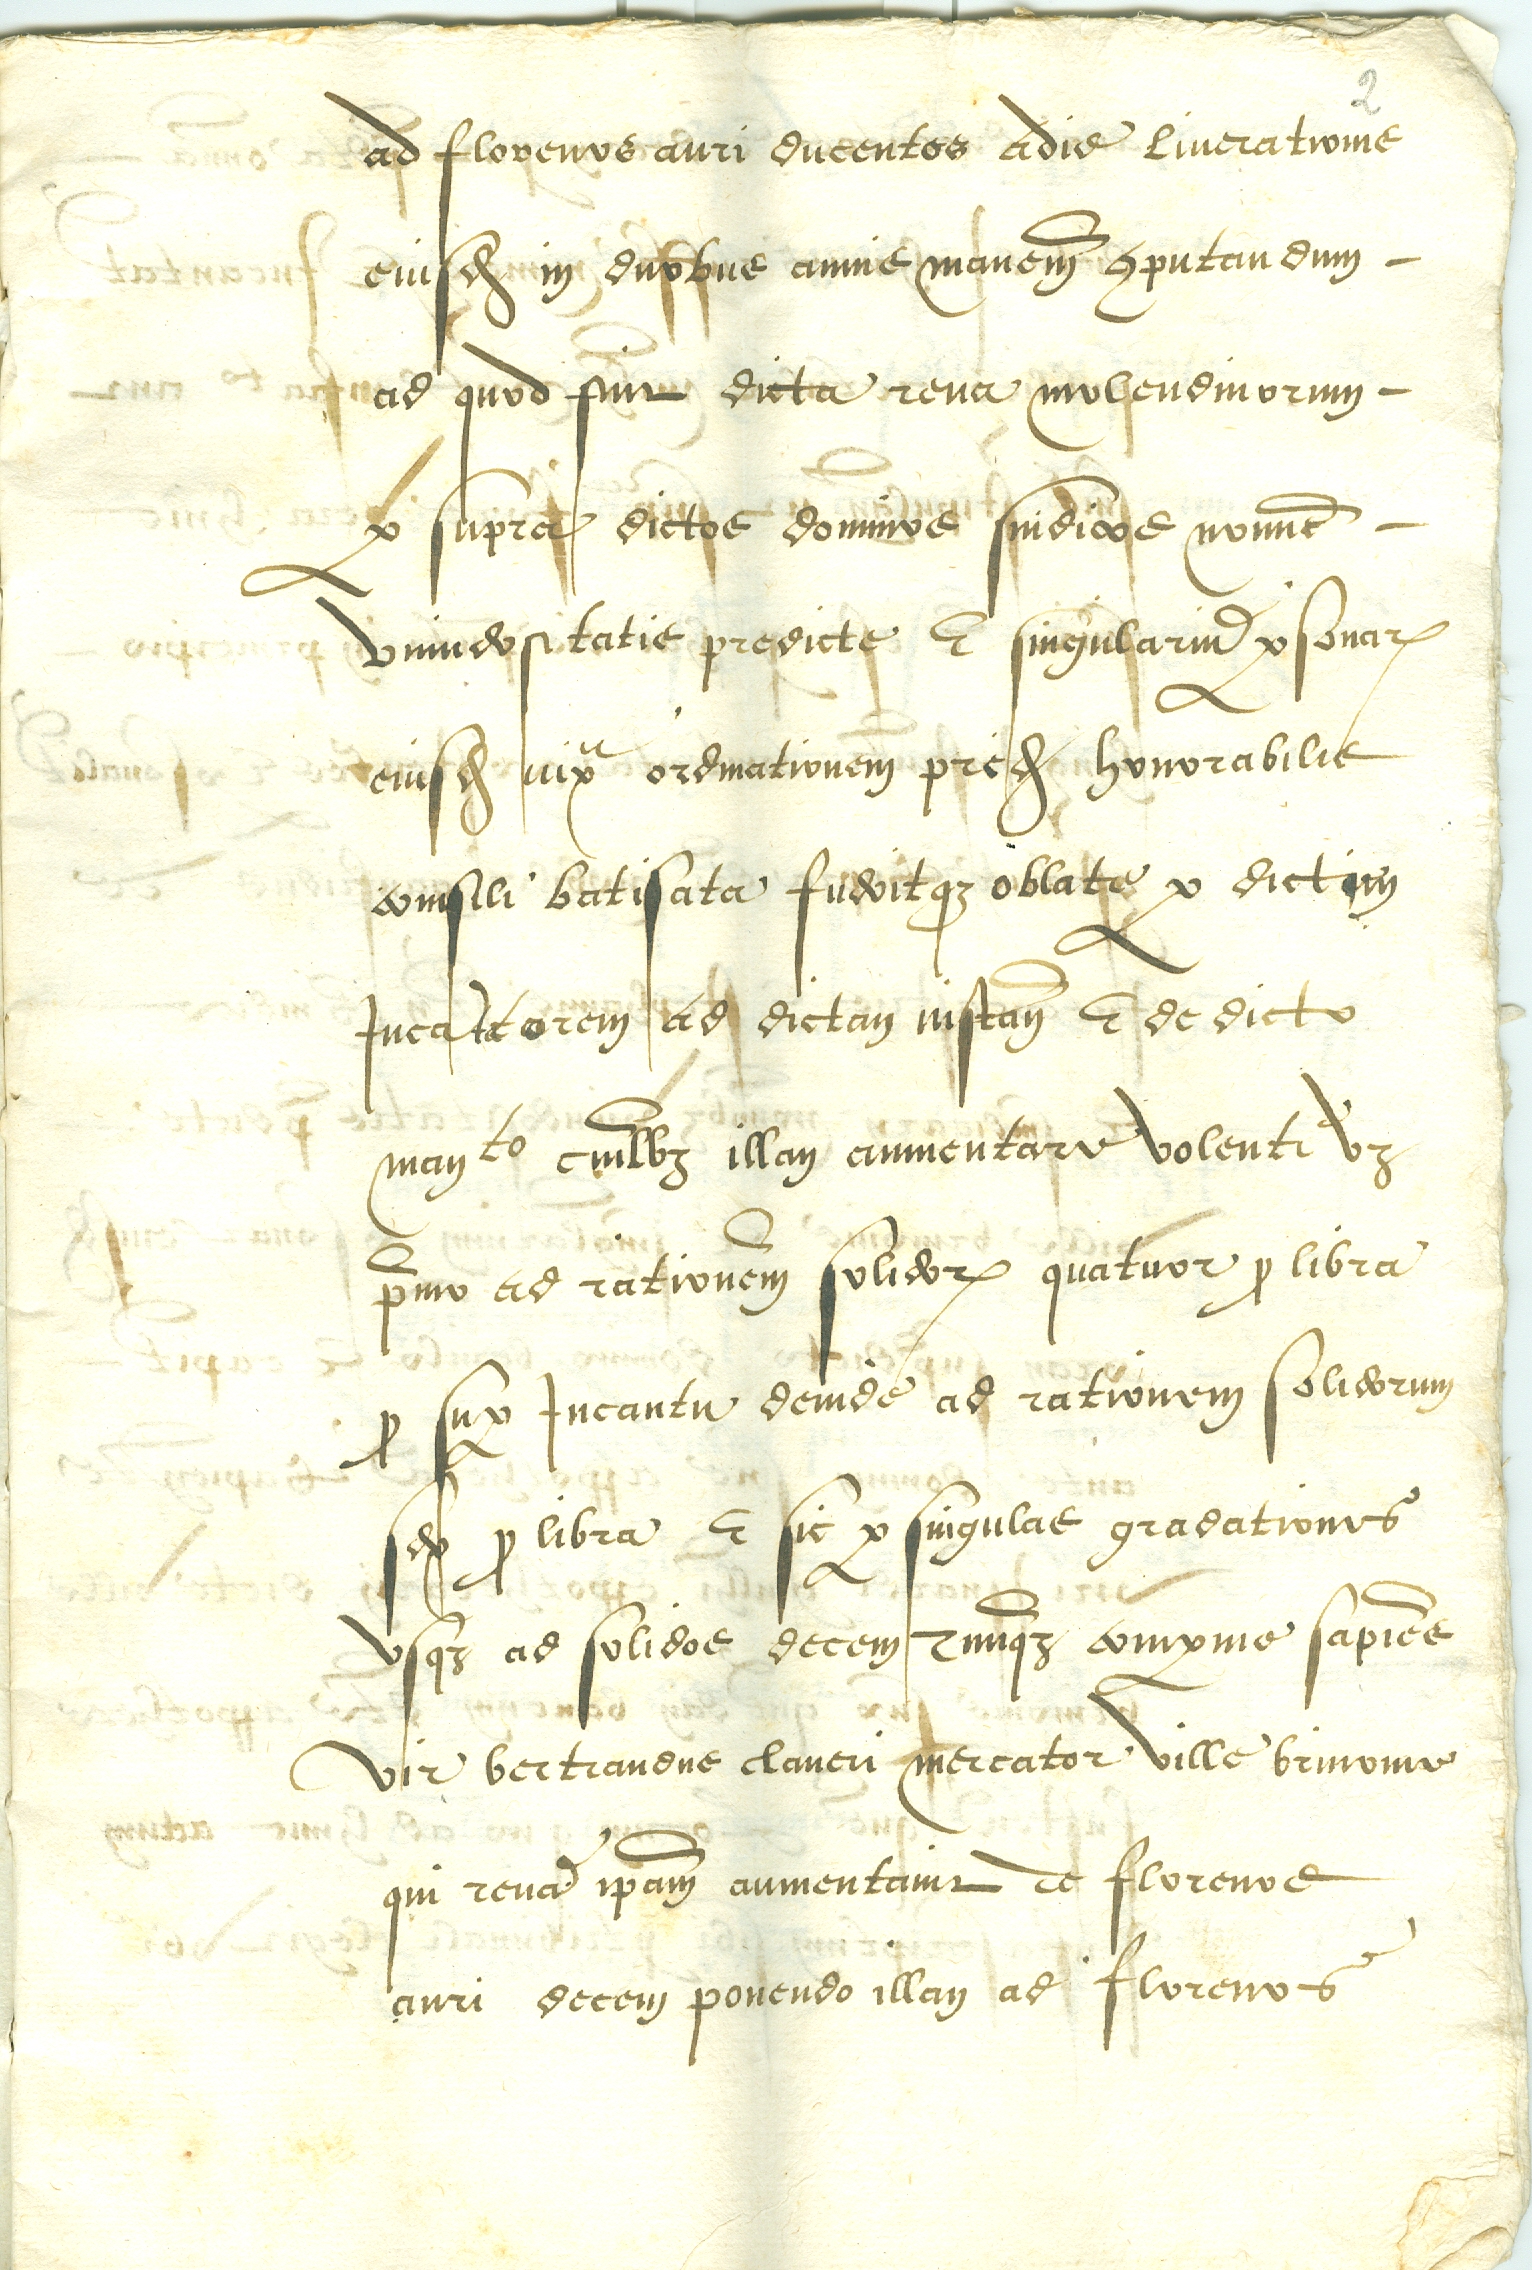 2
ad florenos auri ducentos a die liverationis
eiusd in duobus annis manem computandum -
ad quod fuit dicta reva molendinorum -
per supra dictos dominos sindicos nomine -
universitatis predicte et singulariu personar
eiusd iuxta ordinationem pred honorabilis
consili batisata fuerit q oblate per dictum
Incantorem ad dictan instan et de dicto
man to cuilibz illan aumentare volenti vz
primo ad rationem solidor quatuor pro libra
pro super Incantu deinde ad rationem solidorum
sex pro libra et sic per singulas gradationes
usqz ad solidos decem comperuit sapiens
vir bertrandus claveri mercator ville brinonie
qui reva ipam aumentavit de florenos
auri decem ponendo illan ad florenos